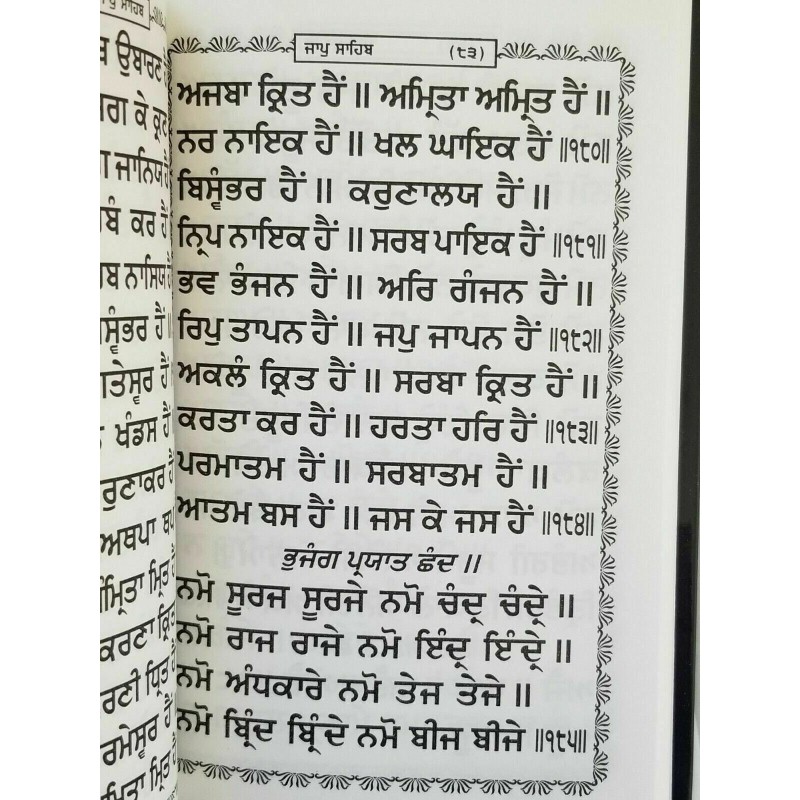 ਜਾਪੁ ਸਾਹਿਬ (੮੩)
ਅਜਬਾ ਕ੍ਰਿਤ ਹੈਂ ॥ ਅਮ੍ਰਿਤਾ ਅਮ੍ਰਿਤ ਹੈਂ ॥
ਨਰ ਨਾਇਕ ਹੈਂ ॥ ਖਲ ਘਾਇਕ ਹੈਂ ॥੧੮੦॥
ਬਿਸ੍ਵੰਭਰ ਹੈਂ ॥ ਕਰੁਣਾਲਯ ਹੈਂ ॥
ਨ੍ਰਿਪ ਨਾਇਕ ਹੈਂ ॥ ਸਰਬ ਪਾਇਕ ਹੈਂ ॥੧੮੧॥
ਭਵ ਭੰਜਨ ਹੈਂ ॥ ਅਰਿ ਗੰਜਨ ਹੈਂ ॥
ਰਿਪੁ ਤਾਪਨ ਹੈਂ ॥ ਜਪੁ ਜਾਪਨ ਹੈਂ ॥੧੮੨॥
ਅਕਲੰ ਕ੍ਰਿਤ ਹੈਂ ॥ ਸਰਬਾ ਕ੍ਰਿਤ ਹੈਂ ॥
ਕਰਤਾ ਕਰ ਹੈਂ ॥ ਹਰਤਾ ਹਰਿ ਹੈਂ ॥੧੮੩॥
ਪਰਮਾਤਮ ਹੈਂ ॥ ਸਰਬਾਤਮ ਹੈਂ ॥
ਆਤਮ ਬਸ ਹੈਂ ॥ ਜਸ ਕੇ ਜਸ ਹੈਂ ॥੧੮੪॥
ਭੁਜੰਗ ਪ੍ਰਯਾਤ ਛੰਦ ॥
ਨਮੋ ਸੂਰਜ ਸੂਰਜੇ ਨਮੋ ਚੰਦ੍ਰ ਚੰਦ੍ਰੇ ॥
ਨਮੋ ਰਾਜ ਰਾਜੇ ਨਮੋ ਇੰਦ੍ਰ ਇੰਦ੍ਰੇ ॥
ਨਮੋ ਅੰਧਕਾਰੇ ਨਮੋ ਤੇਜ ਤੇਜੇ ॥
ਨਮੋ ਬ੍ਰਿੰਦ ਬ੍ਰਿੰਦੇ ਨਮੋ ਬੀਜ ਬੀਜੇ ॥੧੮੫॥